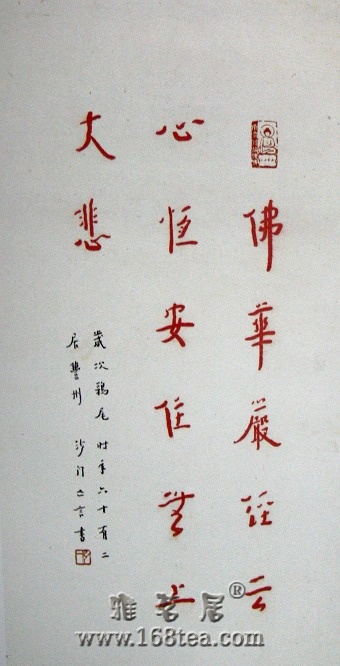 佛華嚴経云
心恒安住無上
大悲
歲次鶉尾 时年六十有二
居豐州 沙门亡言書
雅茗居®
www.168tea.com